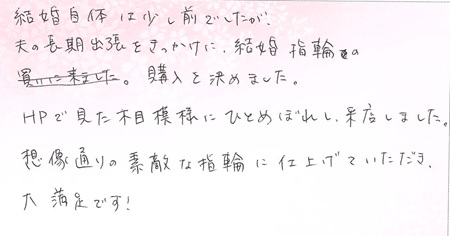 結婚自体は少し前でしたが、
夫の長期出張をきっかけに、結婚指輪の
買いに来ました。購入を決めました。
HPで見た木目模様にひとめぼれし、来店しました。
想像通りの素敵な指輪に仕上げていただき、
大満足です!